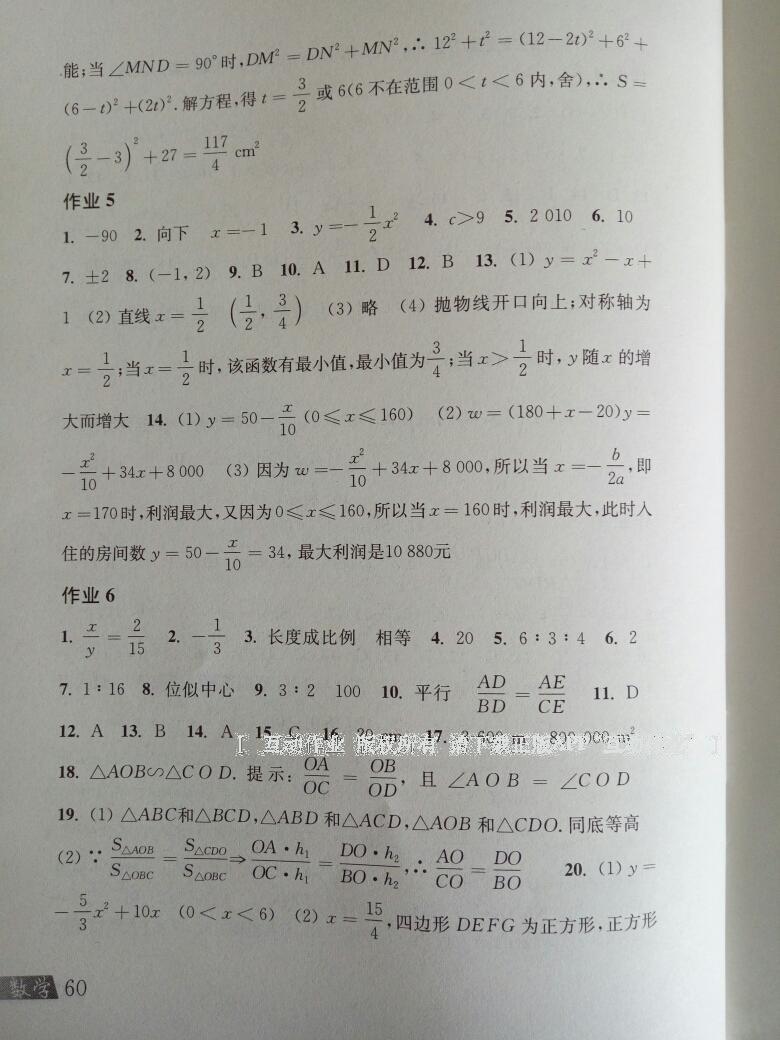 能;当∠MND=90°时,DM²=DN²+MN²,∴ 12²+t²=(12-2t)²+6²+
(6-t)²+(2t)².解方程,得t=3/2或6(6不在范围0<t<6内,舍),∴ S=
(3/2-3)²+27=117/4 cm²
作业5
1. -90 2. 向下 x=-1 3. y=-1/2x² 4. c>9 5. 2 010 6. 10
7. ±2 8. (-1,2) 9. B 10. A 11. D 12. B 13. (1) y=x²-x+
1 (2) 直线x=1/2 (1/2,3/4) (3) 略 (4) 抛物线开口向上;对称轴为
x=1/2;当x=1/2时,该函数有最小值,最小值为3/4;当x>1/2时,y随x的增
大而增大 14. (1) y=50-x/10 (0≤x≤160) (2) w=(180+x-20)y=
-x²/10+34x+8 000 (3) 因为w=-x²/10+34x+8 000,所以当x=-b/2a,即
x=170时,利润最大,又因为0≤x≤160,所以当x=160时,利润最大,此时入
住的房间数y=50-x/10=34,最大利润是10 880元
作业6
1. x/y=2/15 2. -1/3 3. 长度成比例 相等 4. 20 5. 6∶3∶4 6. 2
7. 1∶16 8. 位似中心 9. 3∶2 100 10. 平行 AD/BD=AE/CE 11. D
12. A 13. B 14. A 15. C 16. 20 cm 17.
【 互动作业 版权所有
18. △AOB∽△COD. 提示: OA/OC=OB/OD, 且 ∠AOB=∠COD
19. (1) △ABC和△BCD,△ABD和△ACD,△AOB和△CDO.同底等高
(2) ∵ S△AOB/S△OBC=S△CDO/S△OBC⇒OA·h₁/OC·h₁=DO·h₂/BO·h₂,∴ AO/CO=DO/BO 20. (1) y=
-5/3x²+10x (0<x<6) (2) x=15/4,四边形DEFG为正方形,正方形
数学 60